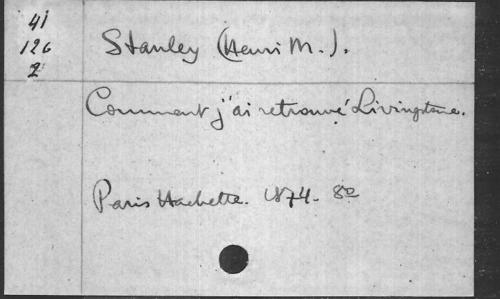 41
126
2
Stanley (Henri M.).
Comment j'ai retrouvé Livingstone.
Paris Hachette. 1874. 8º